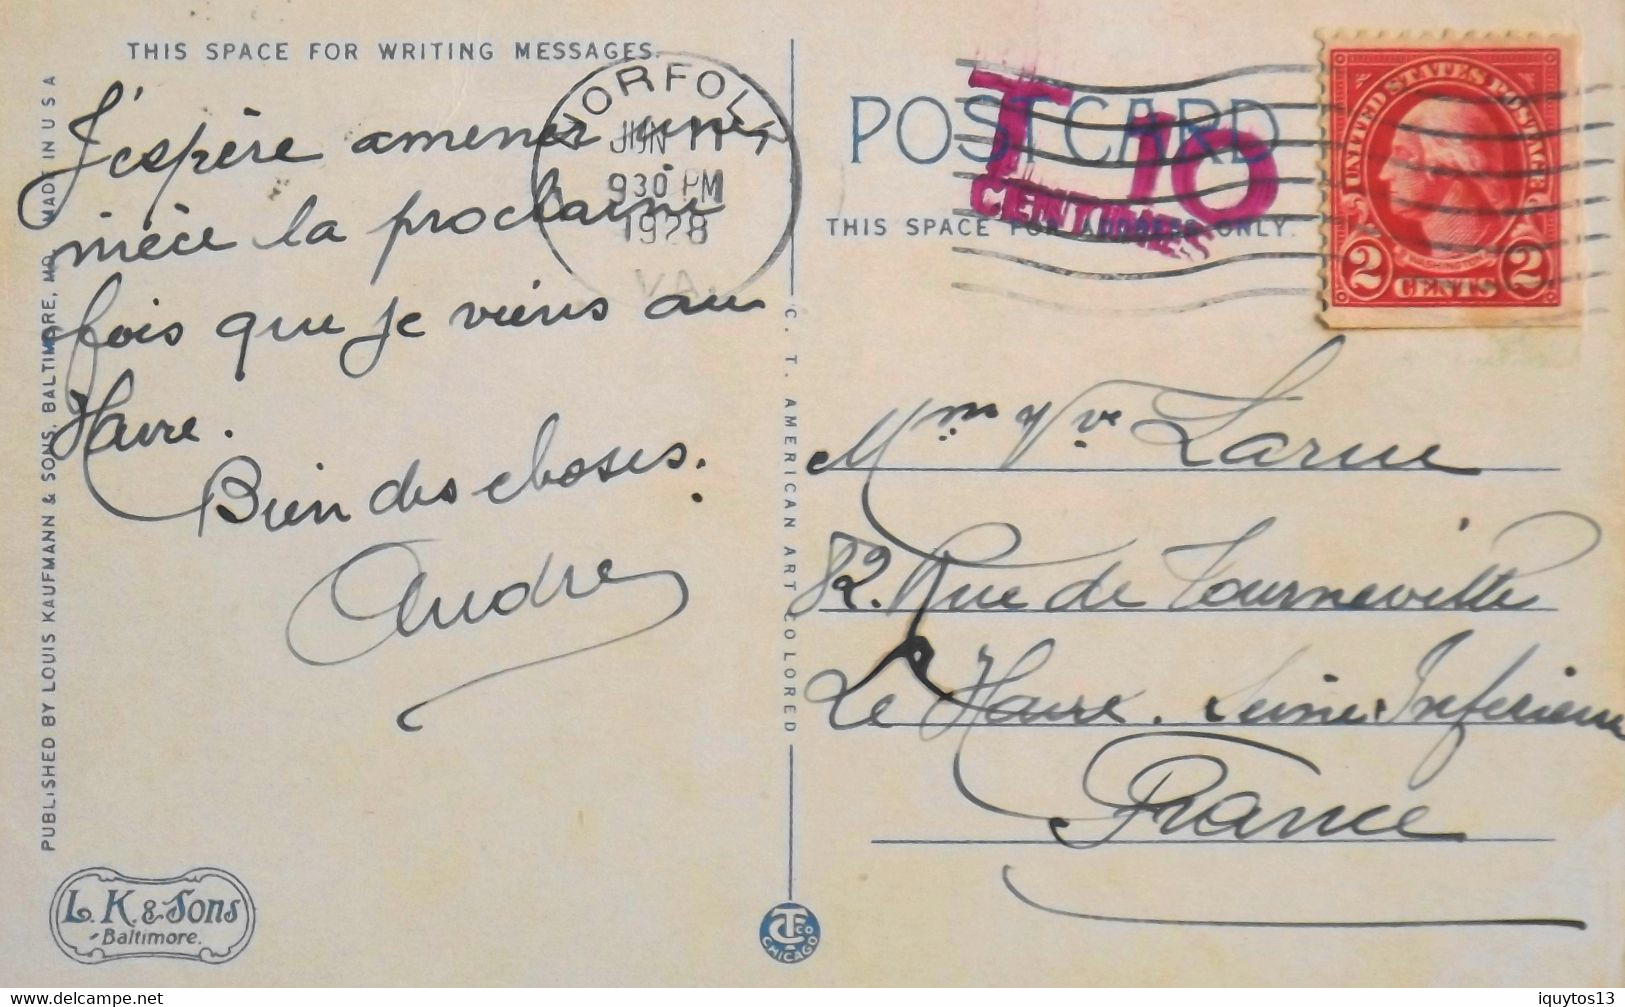 THIS SPACE FOR WRITING MESSAGES.
J'espère amener une
nièce la prochaine
fois que je viens au
Havre.
Bien des choses.
André
NORFOLK
JUN 11
930 PM
1928
VA.
POST CARD
T 10
CENTIMES
THIS SPACE FOR ADDRESS ONLY.
UNITED STATES POSTAGE
WASHINGTON
2 CENTS 2
Mme Vve Larue
82. Rue de Tourneville
Le Havre. Seine Inferieure
France
PUBLISHED BY LOUIS KAUFMANN & SONS, BALTIMORE, MD. MADE IN U S A
C. T. AMERICAN ART COLORED
L. K. & Sons
Baltimore.
CT CO
CHICAGO
delcampe.net
iquytos13